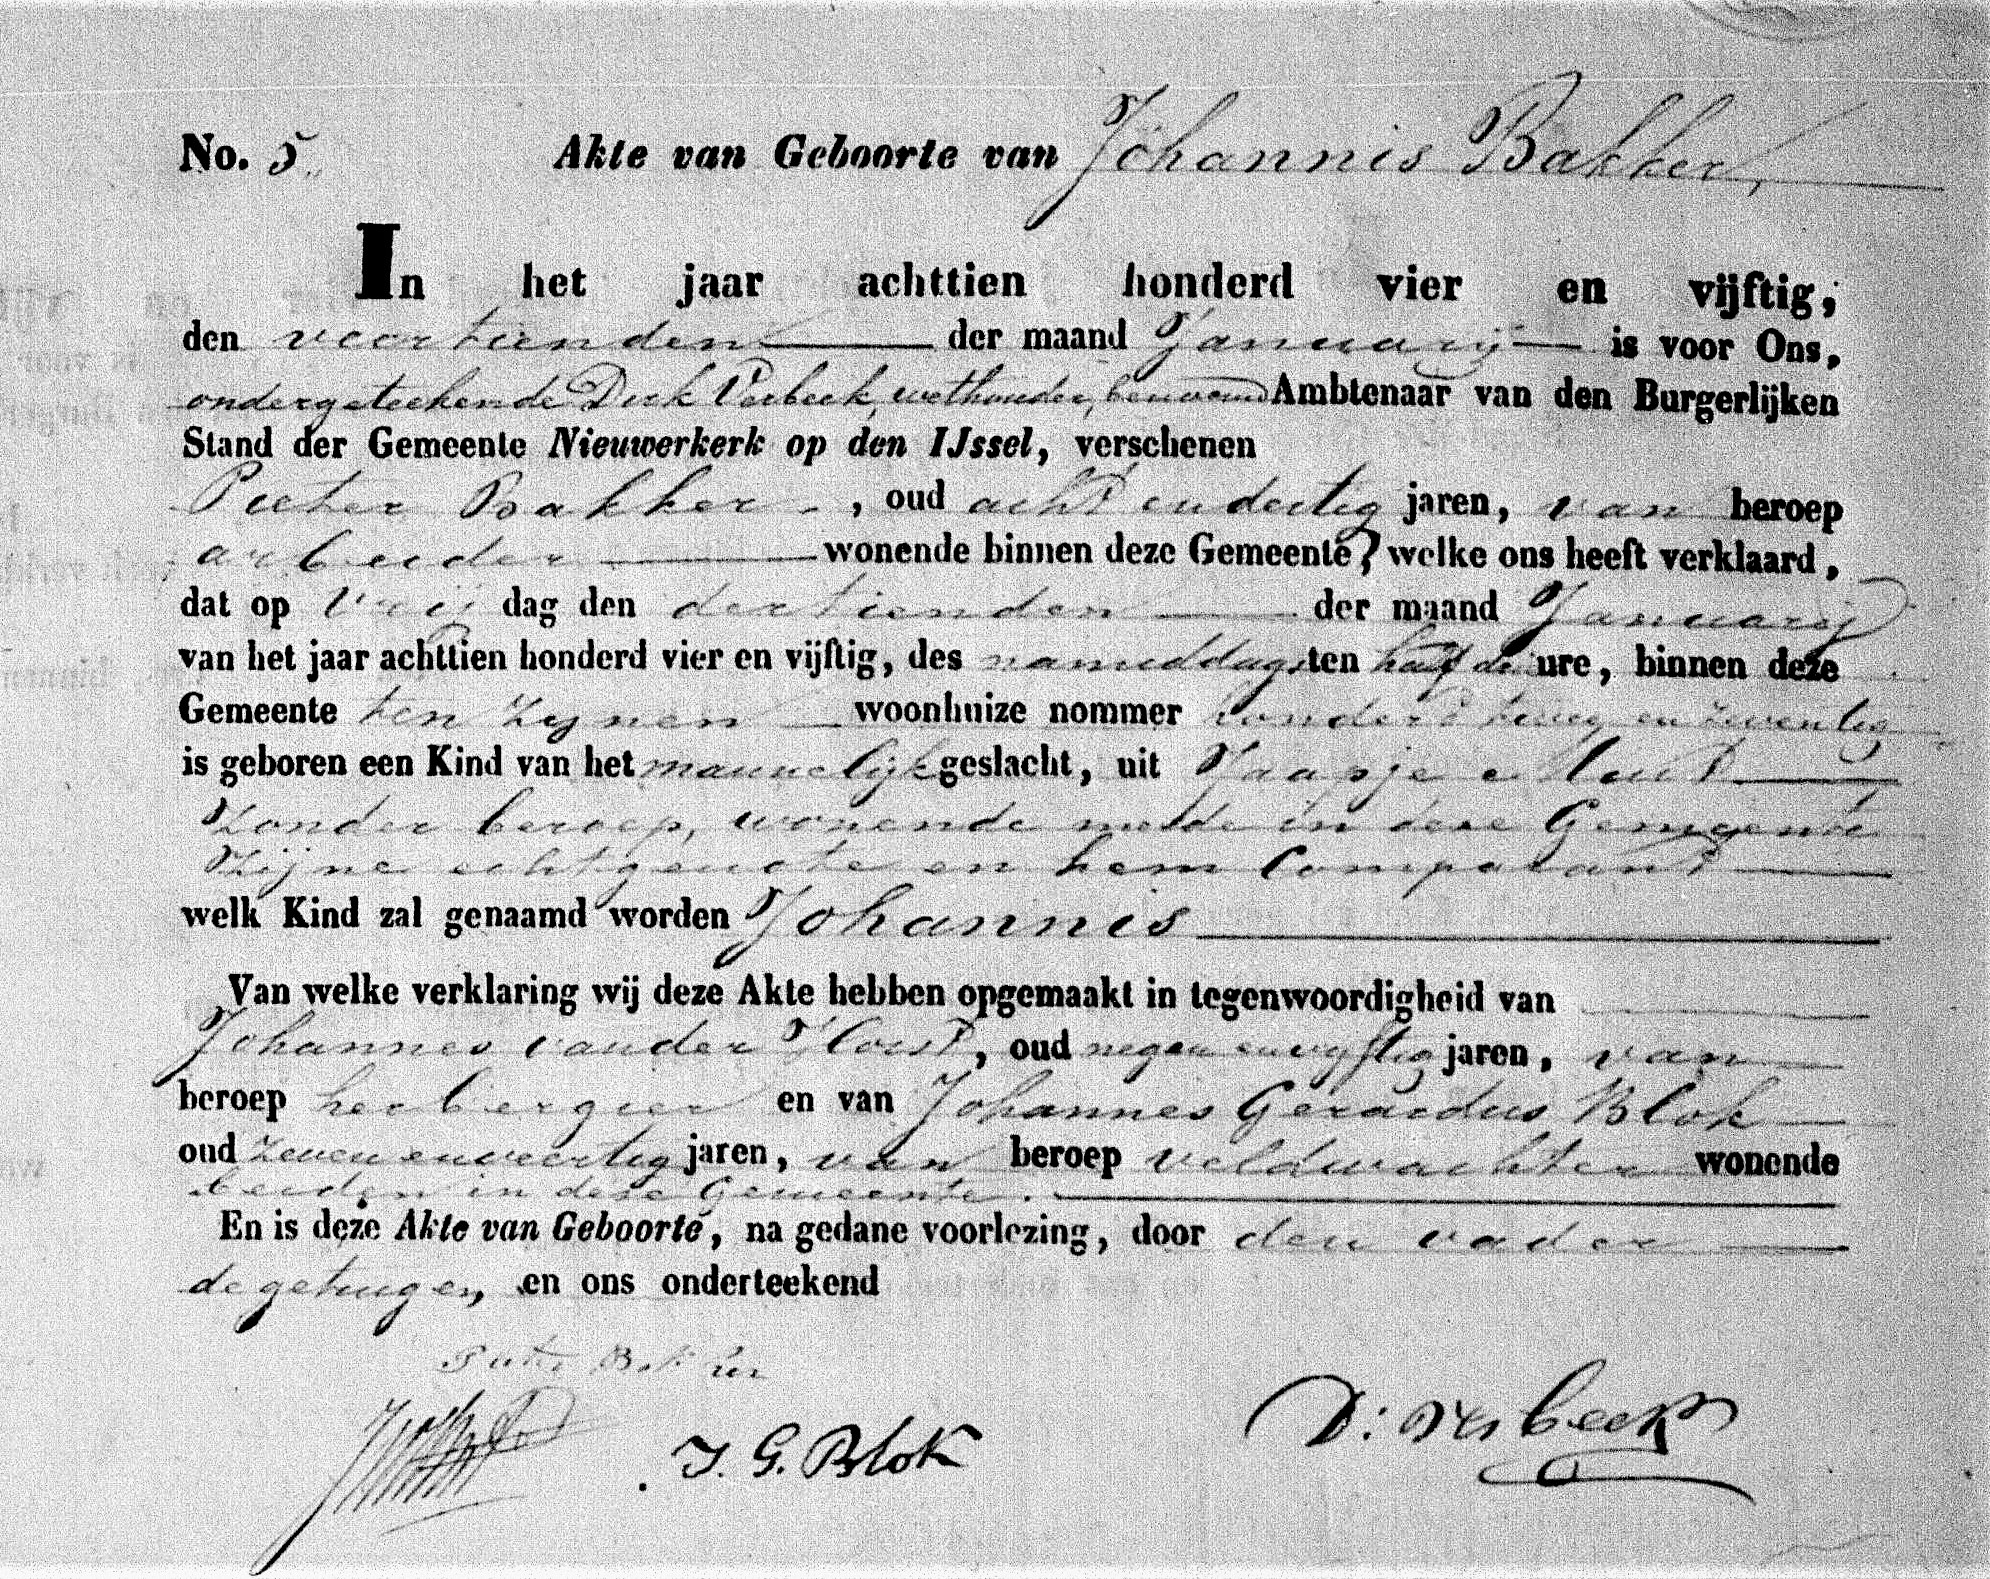 No. 5. Akte van Geboorte van Johannis Bakker,
In het jaar achttien honderd vier en vijftig,
den veertienden der maand Januarij is voor Ons,
ondergeteekende Dirk Verbeek, wethouder, Ambtenaar van den Burgerlijken
Stand der Gemeente Nieuwerkerk op den IJssel, verschenen
Pieter Bakker, oud acht en dertig jaren, van beroep
arbeider wonende binnen deze Gemeente, welke ons heeft verklaard,
dat op Vrij dag den dertienden der maand Januarij
van het jaar achttien honderd vier en vijftig, des namiddags ten half drie ure, binnen deze
Gemeente ten zynen woonhuize nommer honderd twee en twentig
is geboren een Kind van het mannelijk geslacht, uit Jaapje
Zonder beroep, wonende mede in deze Gemeente
Zijne echtgenote en hem Comparant
welk Kind zal genaamd worden Johannis
Van welke verklaring wij deze Akte hebben opgemaakt in tegenwoordigheid van
Johannes van der, oud negen en vyftig jaren, van
beroep herbergier en van Johannes Gerardus Blok
oud zeven en veertig jaren, van beroep veldwachter wonende
beiden in deze Gemeente.
En is deze Akte van Geboorte, na gedane voorlezing, door den vader
de getuigen, en ons onderteekend
Pieter Bakker
J. G. Blok
D: Verbeek